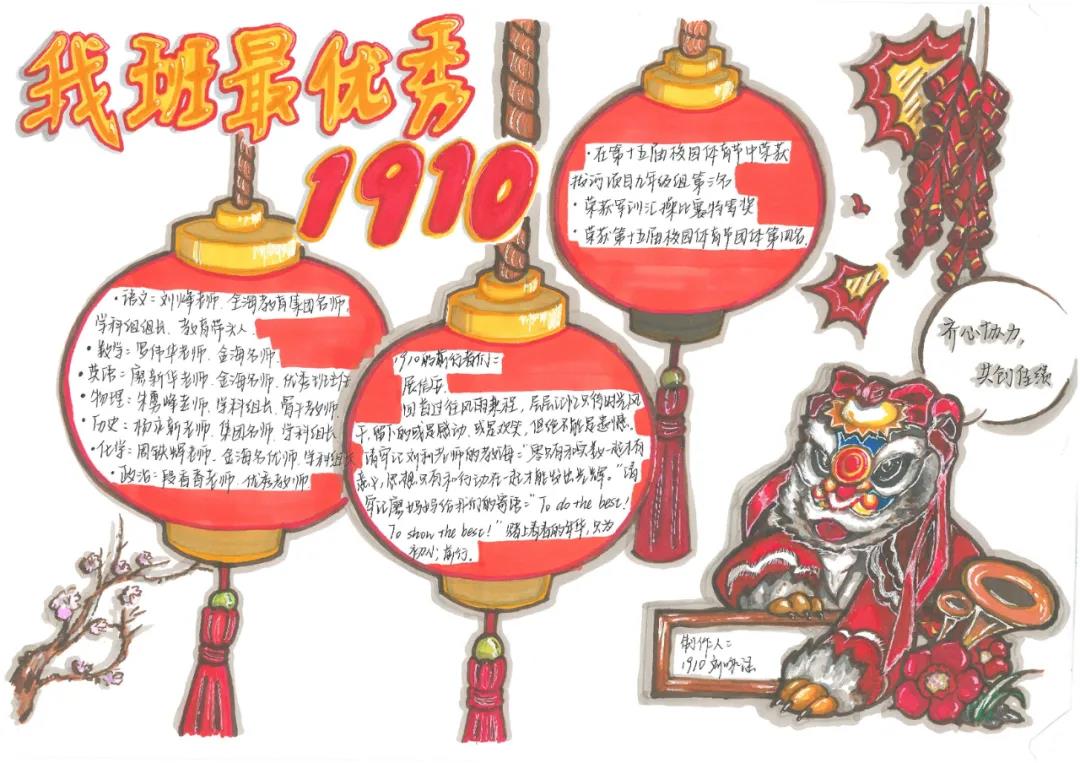 我班最优秀
1910
·语文：刘峰老师、金海教育集团名师、
学科组组长、教育带头人、
·数学：罗伟华老师、金海名师、
·英语：廖新华老师、金海名师、优秀班主任
·物理：朱惠峰老师、学科组长、骨干教师、
·历史：杨永新老师、集团名师、学科组长
·化学：周铁辉老师、金海名优师、学科组长
·政治：段香香老师、优秀教师
1910的前行者们：
展信乐
回首过往风雨兼程，层层记忆只待时光风
干，留下的或是感动、或是欢笑，但绝不能是遗憾。
请牢记刘利老师的教诲：“思只有和实教一起才有
意义，思想只有和行动在一起才能发出光辉。”请
牢记廖妈妈给我们的寄语：“To do the best!
To show the best!”踏上青春的年华，只为
初心，前行。
·在第十五届校园体育节中荣获
拔河项目九年级组第二名
·荣获军训汇操比赛特等奖
·荣获第十五届校园体育节团体第四名.
齐心协力，
共创佳绩
制作人：
1910 刘